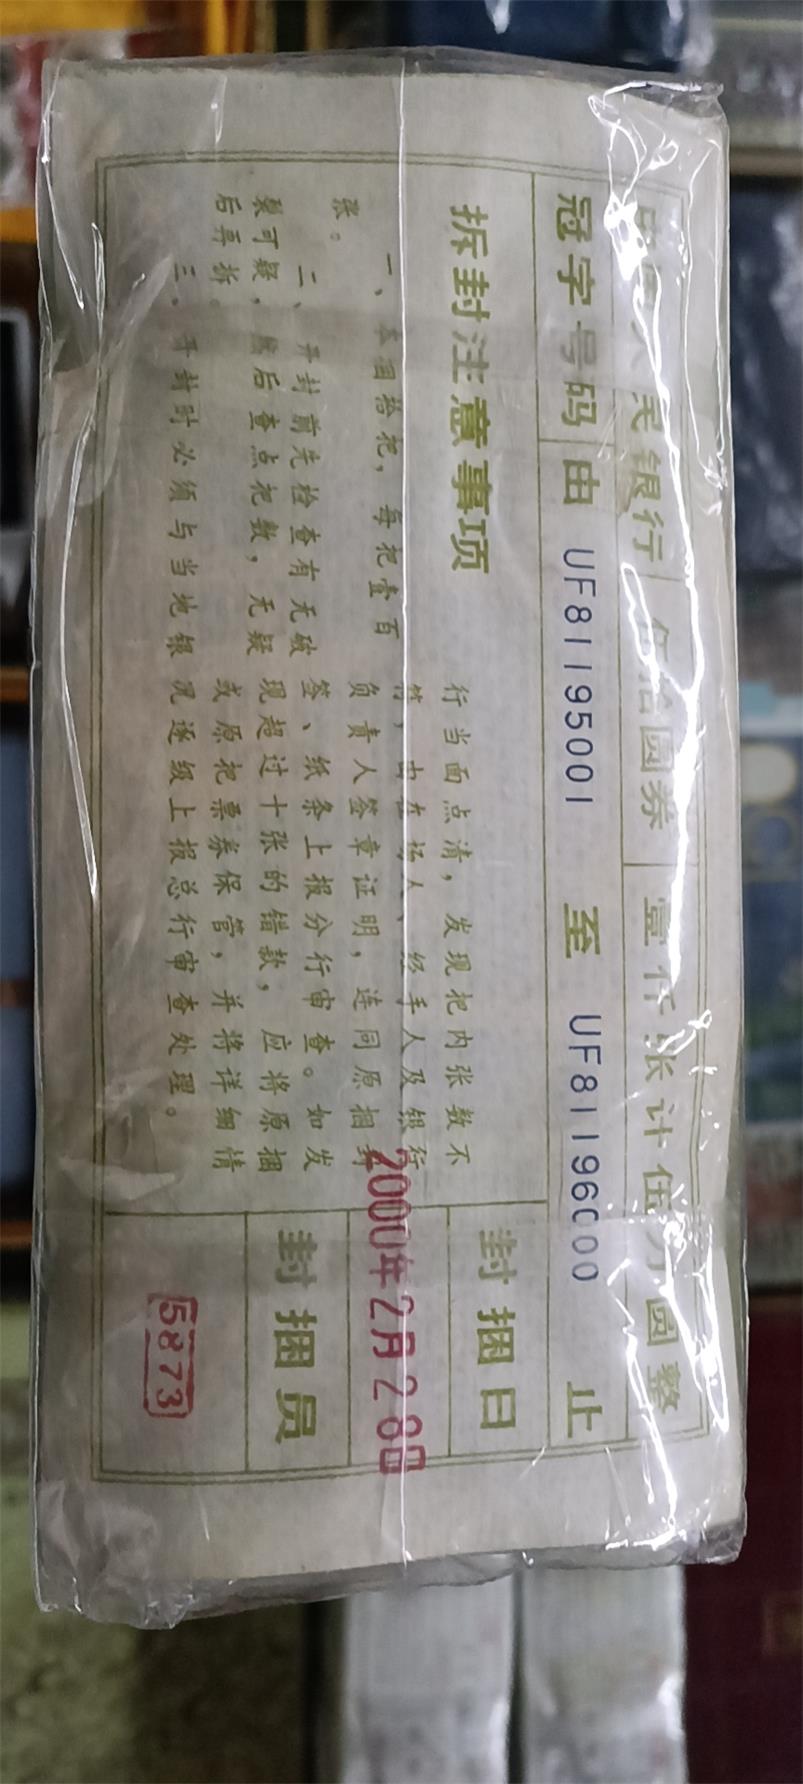 中国人民银行 伍拾圆券 壹仟张计伍万圆整
冠字号码 由 UF81195001 至 UF81196000 止
拆封注意事项
一、本捆拾把，每把壹百
张。
二、开封前先检查有无破
裂可疑，然后查点把数，无疑
后再拆。
三、开封时必须与当地银
行当面点清，发现把内张数不
符，由在场人、经手人及银行
负责人签章证明，连同原捆封
签、纸条上报分行审查。如发
现超过十张的错款，应将原捆
或原把票券保管，并将详细情
况逐级上报总行审查处理。
封捆日
2000年2月28日
封捆员
5873